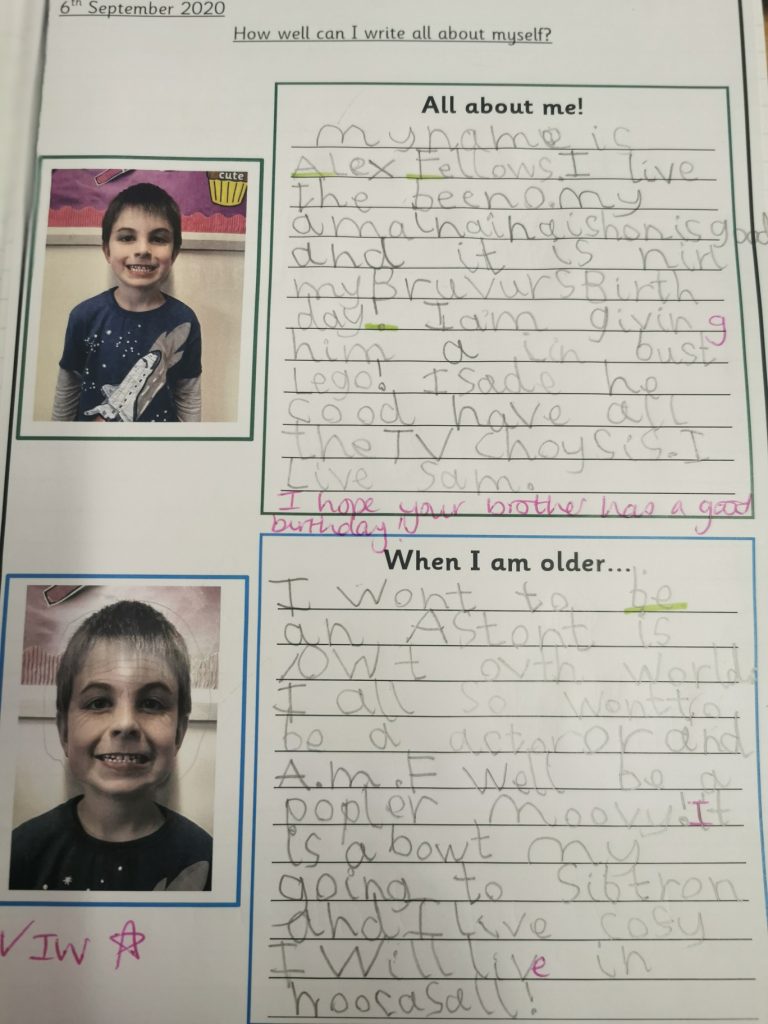 6th September 2020
How well can I write all about myself?
All about me!
my name is
Alex Fellows. I live
the beeno. my
amalnainaishon is good
and it is nirl
my Bruvurs Birth
day! I am giving
him a in bust
Lego! I sade he
cood have all
the TV choysis. I
Live Sam.
I hope your brother has a good
birthday!
cute
When I am older...
I wont to be
an Astont is
owt ovth world.
I all so wont to
be a actor or and
A.m.F well be a
popler moovy! It
is abowt my
going to Sibtron
and I live cosy
I Will live in
hoocasall!
VIW